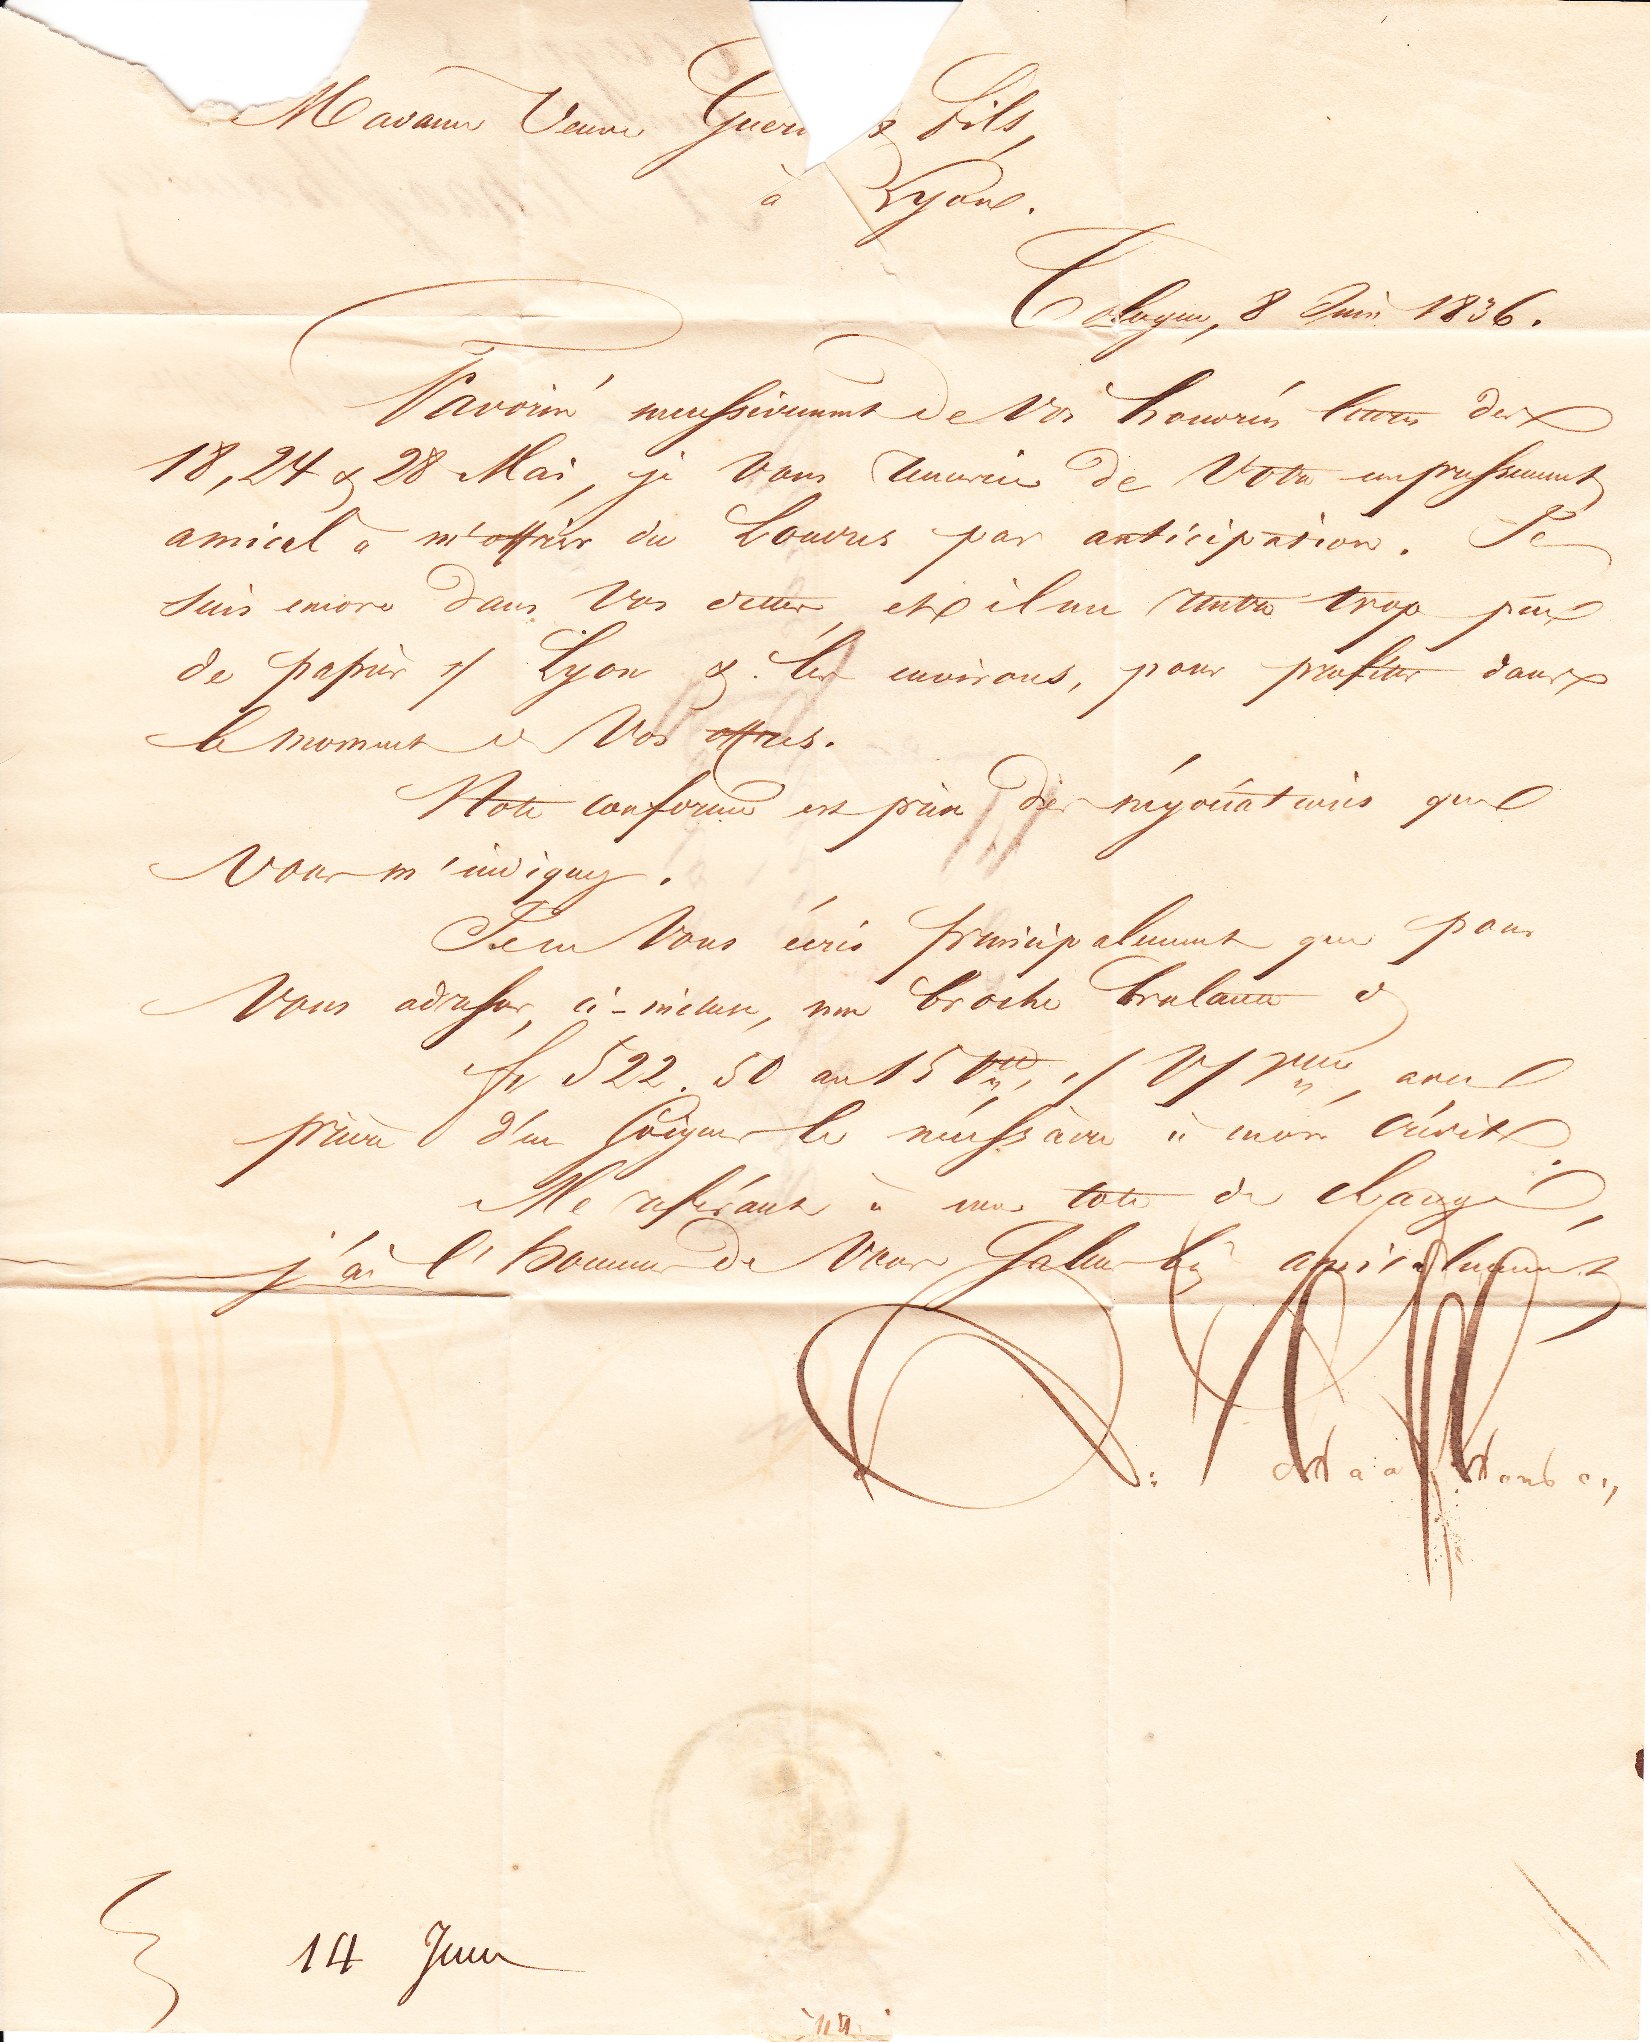 Madame Veuve Guerin & fils,
à Lyon.
Cologne, 8 Juin 1836.
Favorisé successivement de Vos honorées lettres des
18, 24 & 28 Mai, je Vous remercie de Votre empressement
amical à m'offrir du Louvres par anticipation. Je
suis encore dans Vos dettes, et il me rentre trop peu
de papier s/ Lyon & les environs, pour profiter dans
le moment de Vos offres.
Note conforme est prise des négociations que
Vous m'indiquez.
Je ne Vous écris principalement que pour
Vous adresser, ci-incluse, une broche brulante de
fr 522. 50 au 15 s/ V/ avec
prière d'en soigner le nécessaire à mon crédit.
Me referant à ma cote de change,
j'ai l'honneur de Vous saluer bien amicalement
14 Juin